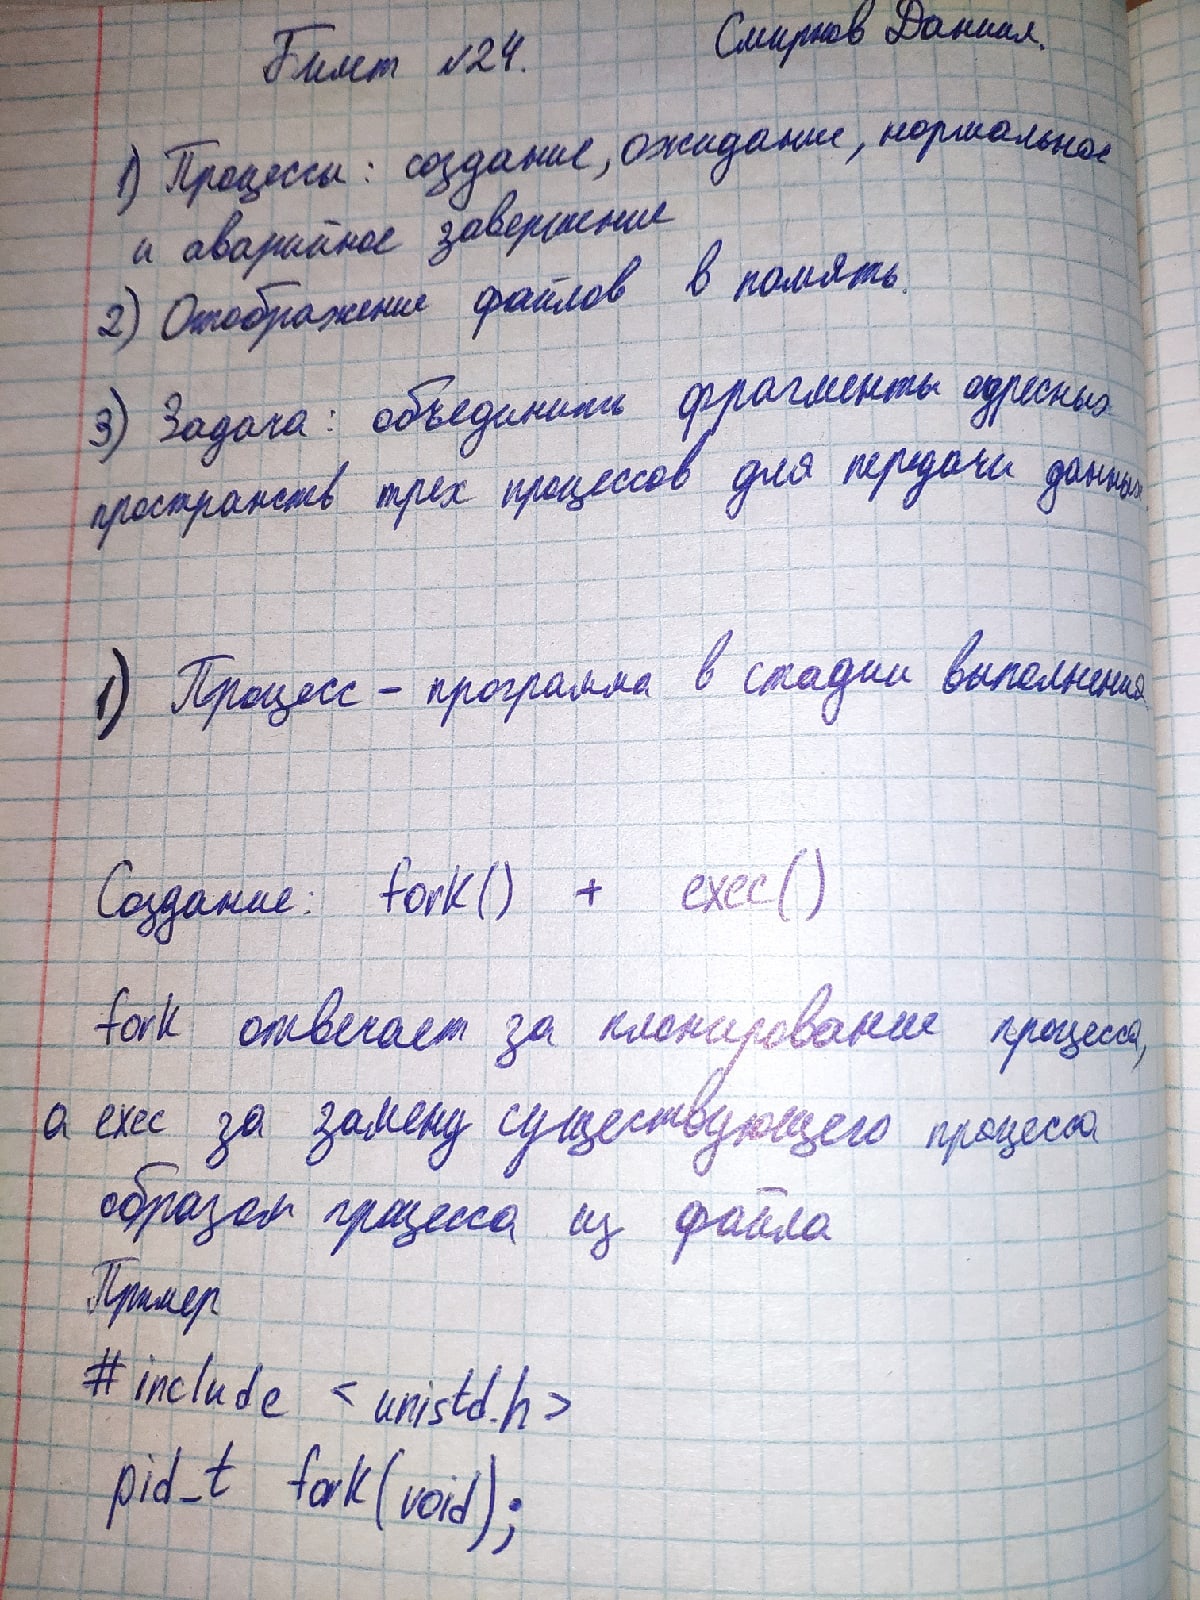 Билет №24. Смирнов Даниил.
1) Процессы: создание, ожидание, нормальное
и аварийное завершение
2) Отображение файлов в память.
3) Задача: объединить фрагменты адресных
пространств трех процессов для передачи данных
1) Процесс - программа в стадии выполнения
Создание: fork() + exec()
fork отвечает за планирование процесса,
а exec за замену существующего процесса
образом процесса из файла
Пример
#include <unistd.h>
pid_t fork(void);